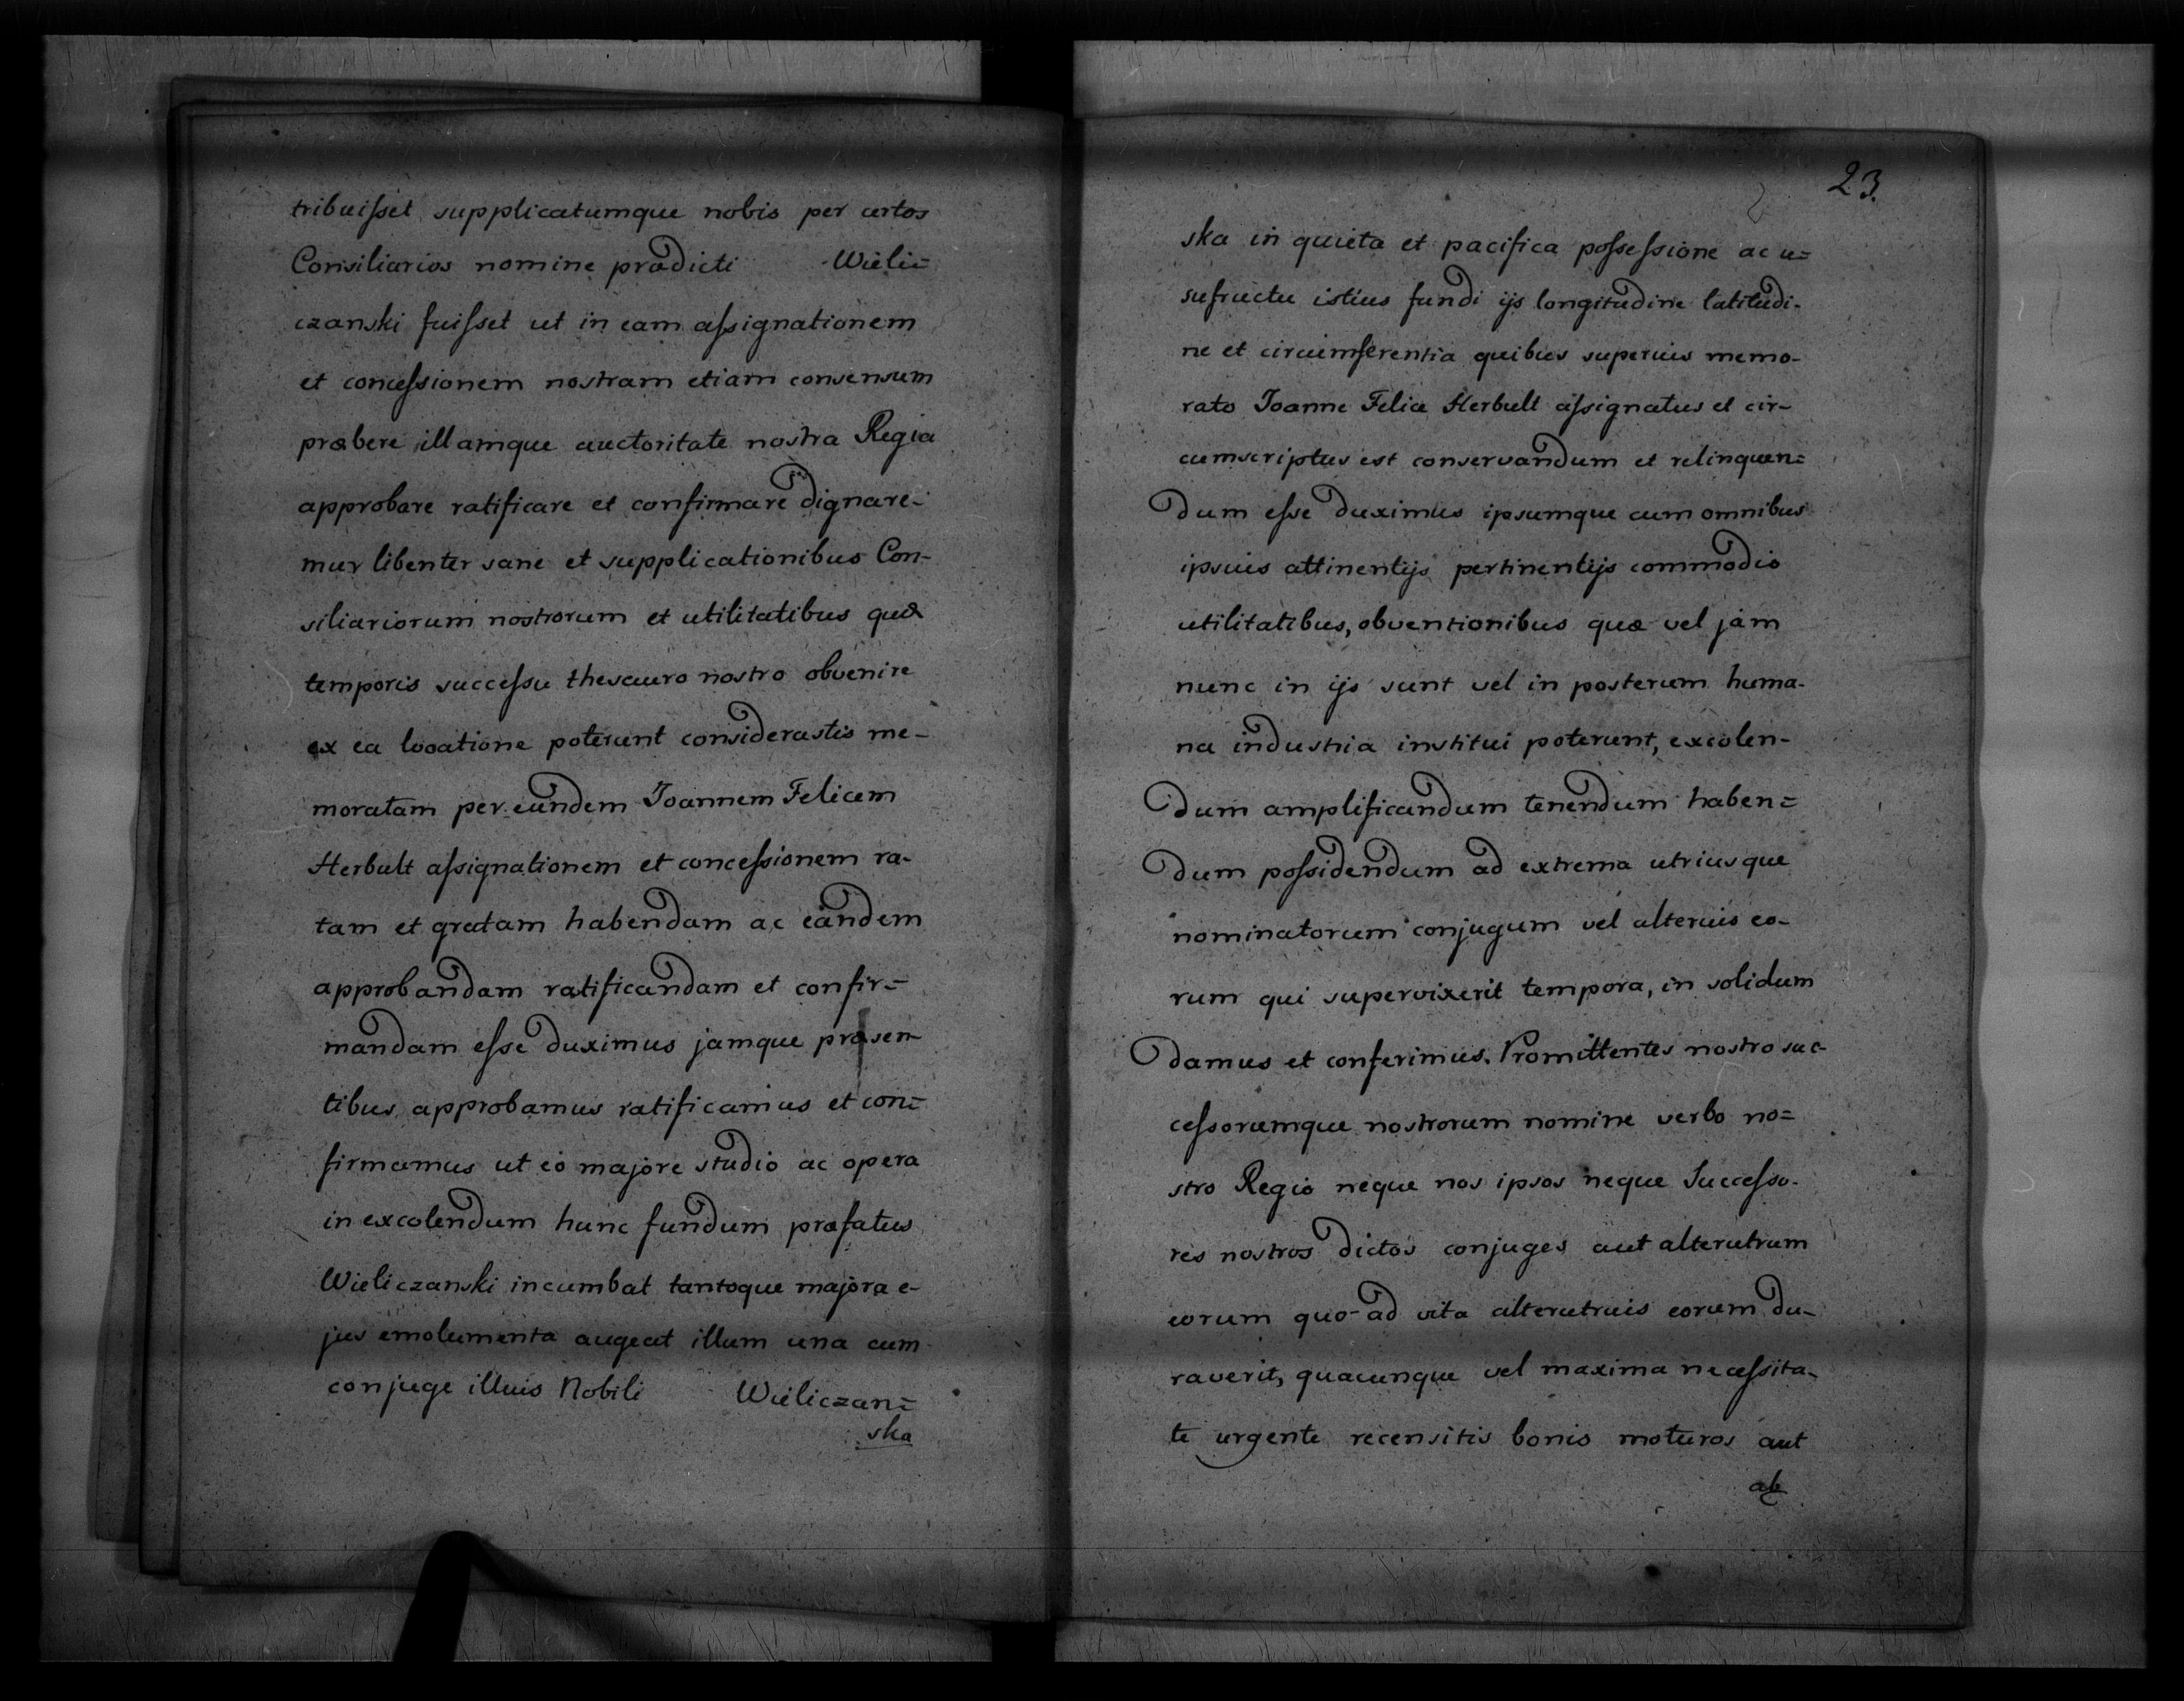 tribuisset supplicatumque nobis per certos
Consiliarios nomine prædicti Wielic=
czanski fuisset ut in eam assignationem
et concessionem nostram etiam consensum
præbere illamque auctoritate nostra Regia
approbare ratificare et confirmare dignare-
mur libenter sane et supplicationibus Con-
siliariorum nostrorum et utilitatibus quæ
temporis successu thesauro nostro obvenire
ex ea locatione poterunt considerastis me-
moratam per eundem Joannem Felicem
Herbult assignationem et concessionem ra-
tam et gratam habendam ac eandem
approbandam ratificandam et confir=
mandam esse duximus jamque præsen-
tibus approbamus ratificamus et con=
firmamus ut eo majore studio ac opera
in excolendum hunc fundum præfatus
Wieliczanski incumbat tantoque majora e-
jus emolumenta augeat illum una cum
conjuge illius Nobili Wieliczan=
ska
23.
ska in quieta et pacifica possessione ac u=
sufructu istius fundi ijs longitudine latitudi-
ne et circumferentia quibus superius memo-
rato Joanne Felice Herbult assignatus et cir-
cumscriptus est conservandum et relinquen=
dum esse duximus ipsumque cum omnibus
ipsius attinentijs pertinentijs commodis
utilitatibus, obventionibus quæ vel jam
nunc in ijs sunt vel in posterum huma-
na industria institui poterunt, excolen-
dum amplificandum tenendum haben=
dum possidendum ad extrema utriusque
nominatorum conjugum vel alterius eo-
rum qui supervixerit tempora, in solidum
damus et conferimus. Promittentes nostro suc-
cessorumque nostrorum nomine verbo no=
stro Regio neque nos ipsos neque Successo-
res nostros dictos conjuges aut alterutrum
eorum quo-ad vita alterutrius eorum du-
raverit, quacunque vel maxima necessita-
te urgente recensitis bonis moturos aut
ab